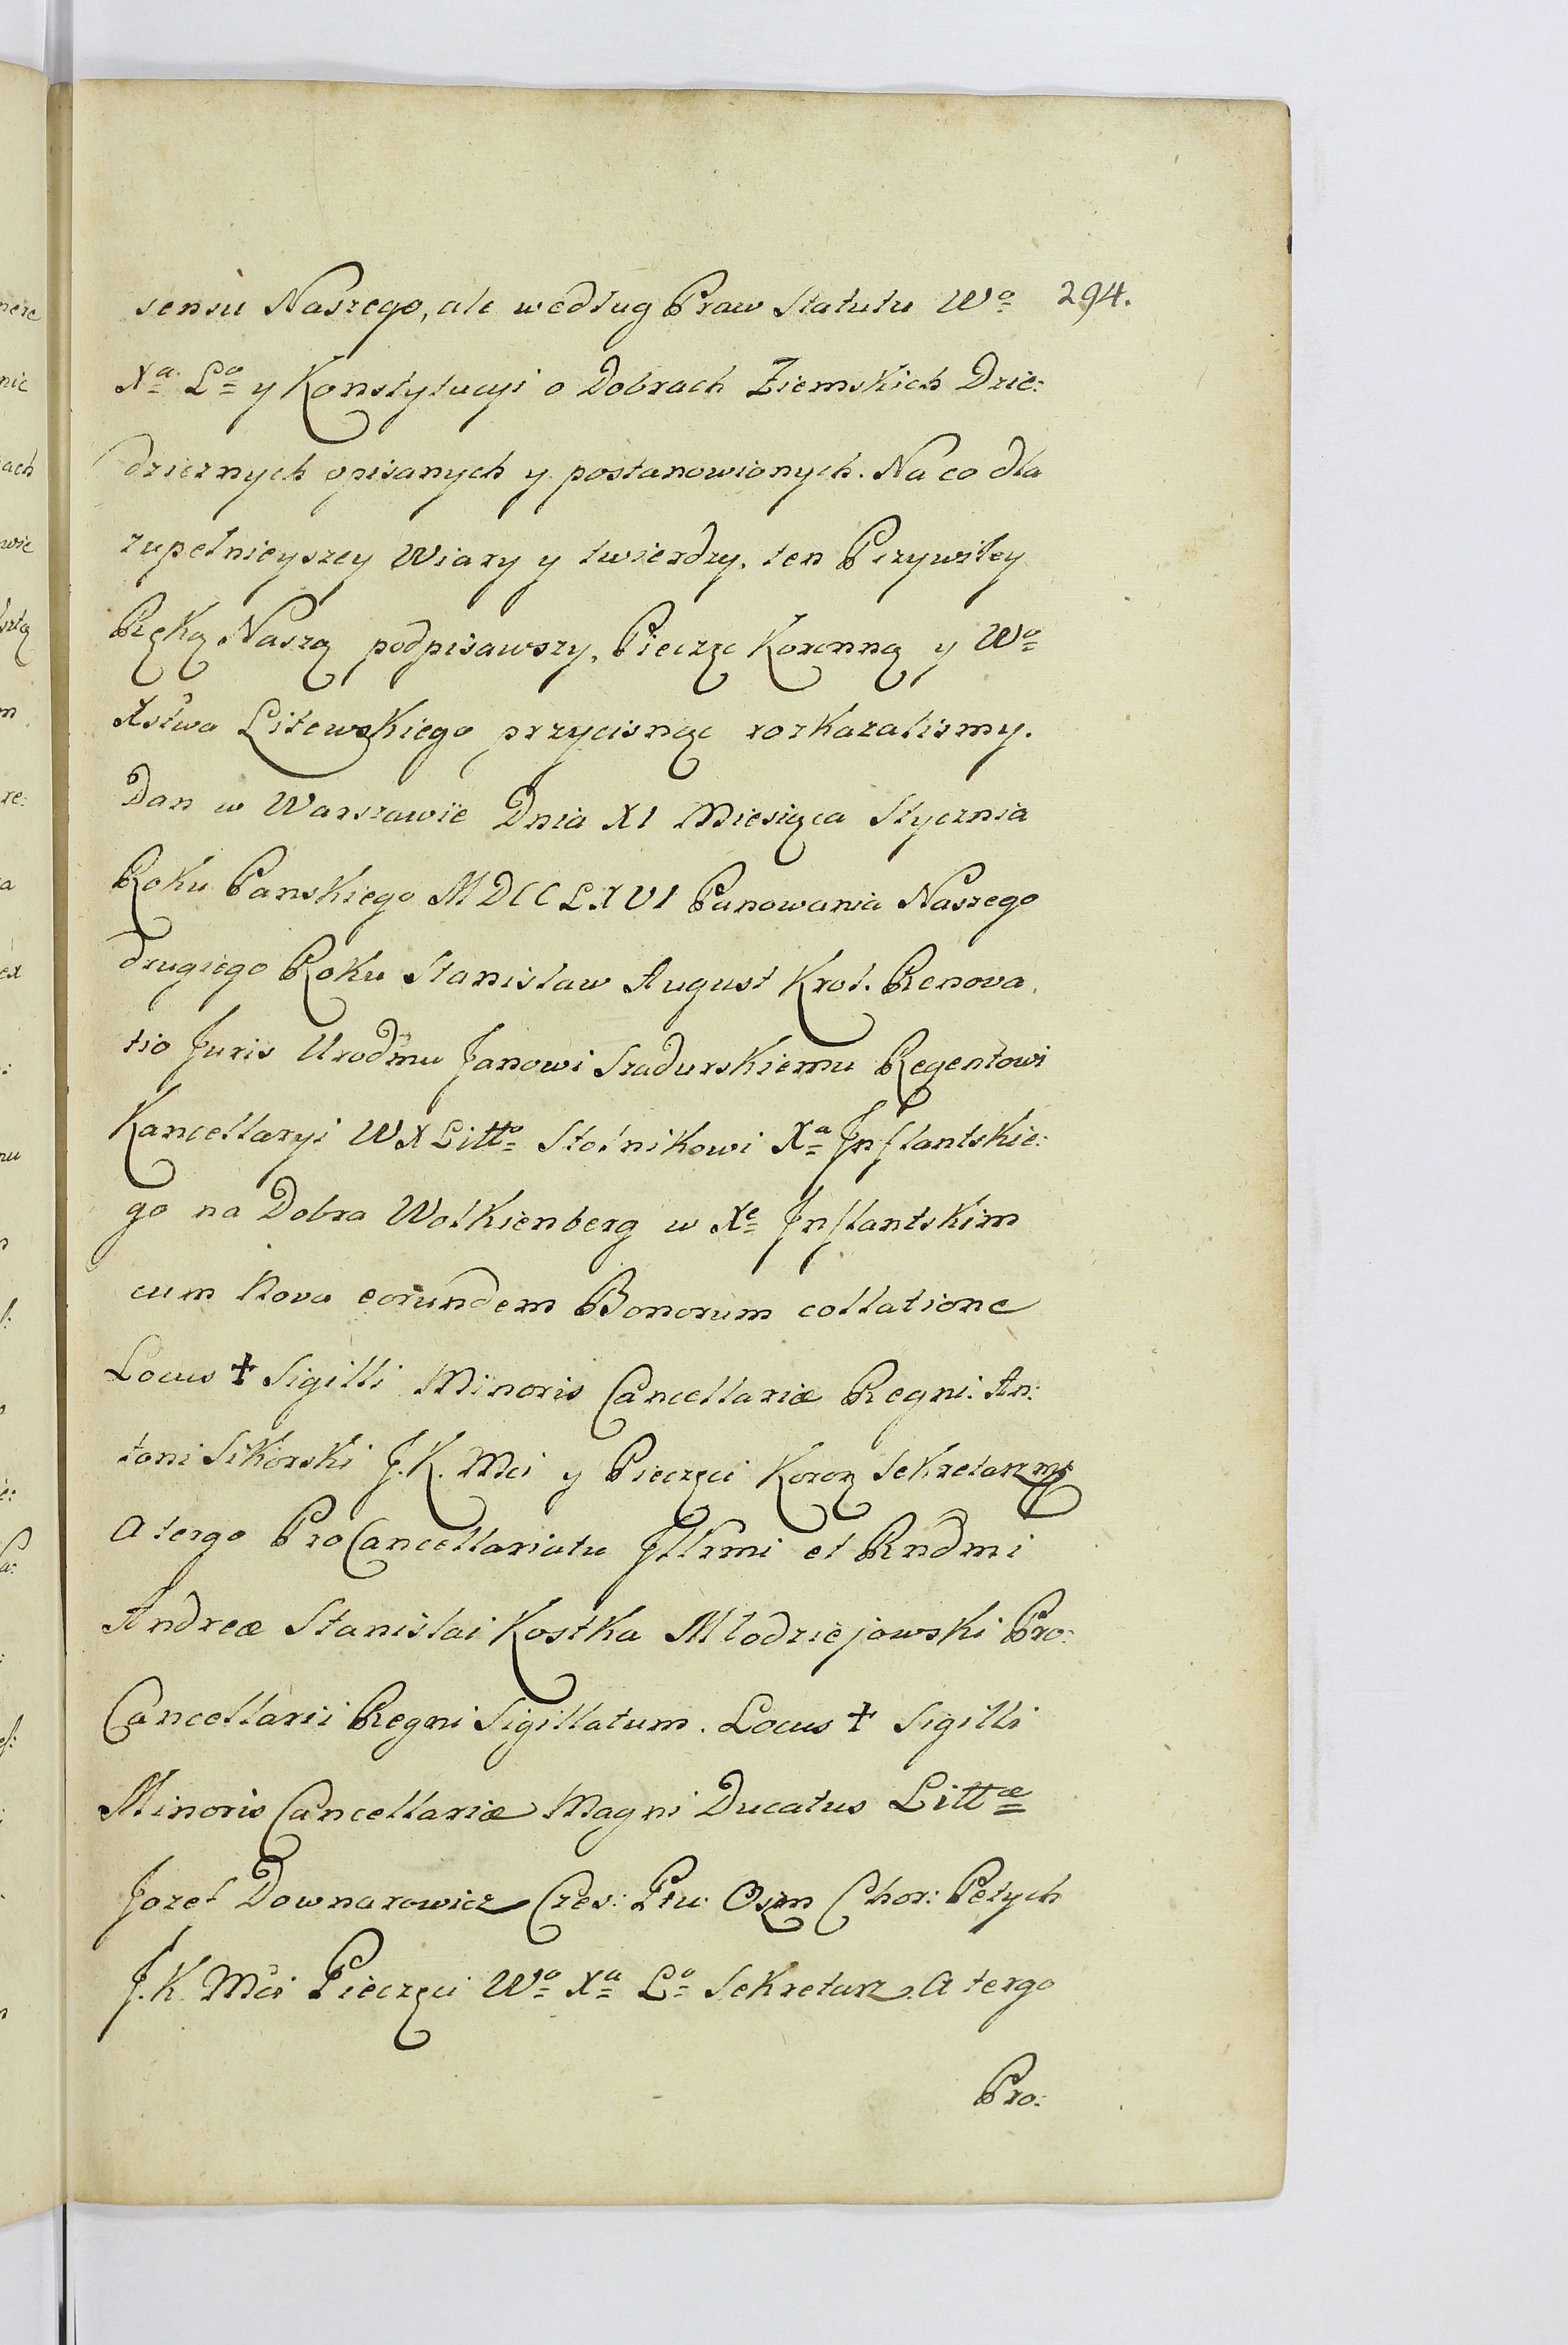 sensu Naszego, ale według Praw Statutu Wº 294.
Xª Lº y Konstytucyi o Dobrach Ziemskich Dzie:
dzicznych opisanych y postanowionych. Na co dla
zupełnieyszey Wiary y twierdzy, ten Przywiley
Ręką Naszą podpisawszy, Pieczęc Koronną y Wº
Xstwa Litewskiego przycisnąc rozkazalismy.
Dan w Warszawie Dnia XI Miesiąca Stycznia
Roku Panskiego MDCCLXVI Panowania Naszego
drugiego Roku Stanisław August Krol. Renova,
tio Juris Urodmu Janowi Szadurskiemu Regentowi
Kancellaryi WXLittº Stolnikowi Xª Inflantskie:
go na Dobra Wolkienberg w Xe Inflantskim
cum Nova eorundem Bonorum collatione
Locus ✝ Sigilli Minoris Cancellariæ Regni. An:
toni Sikorski J.K. Mci y Pieczęci Koron Sekretarz mp
A tergo ProCancellariatu Illrmi et Rndmi
Andreæ Stanislai Kostka Młodziejowski Pro:
Cancellarii Regni Sigillatum. Locus ✝ Sigilli
Minoris Cancellariæ Magni Ducatus Littæ
Jozef Downarowicz Czes: Ptu: Oszm Chor: Petych
J.K. Mci Pieczęci Wº Xª Lº Sekretarz. A tergo
Pro: